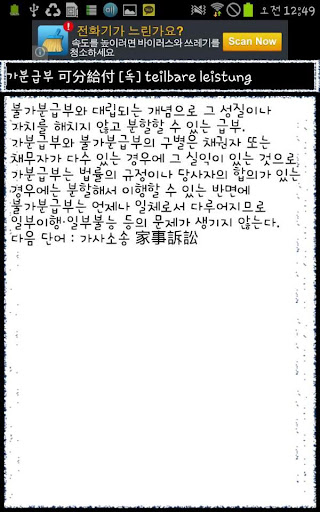 오전 12:49
전화기가 느린가요?
속도를 높이려면 바이러스와 쓰레기를
청소하세요
Scan Now
가분급부 可分給付 [독] teilbare leistung
불가분급부와 대립되는 개념으로 그 성질이나
가치를 해치지 않고 분할할 수 있는 급부.
가분급부와 불가분급부의 구별은 채권자 또는
채무자가 다수 있는 경우에 그 실익이 있는 것으로,
가분급부는 법률의 규정이나 당사자의 합의가 있는
경우에는 분할해서 이행할 수 있는 반면에
불가분급부는 언제나 일체로서 다루어지므로
일부이행·일부불능 등의 문제가 생기지 않는다.
다음 단어 : 가사소송 家事訴訟